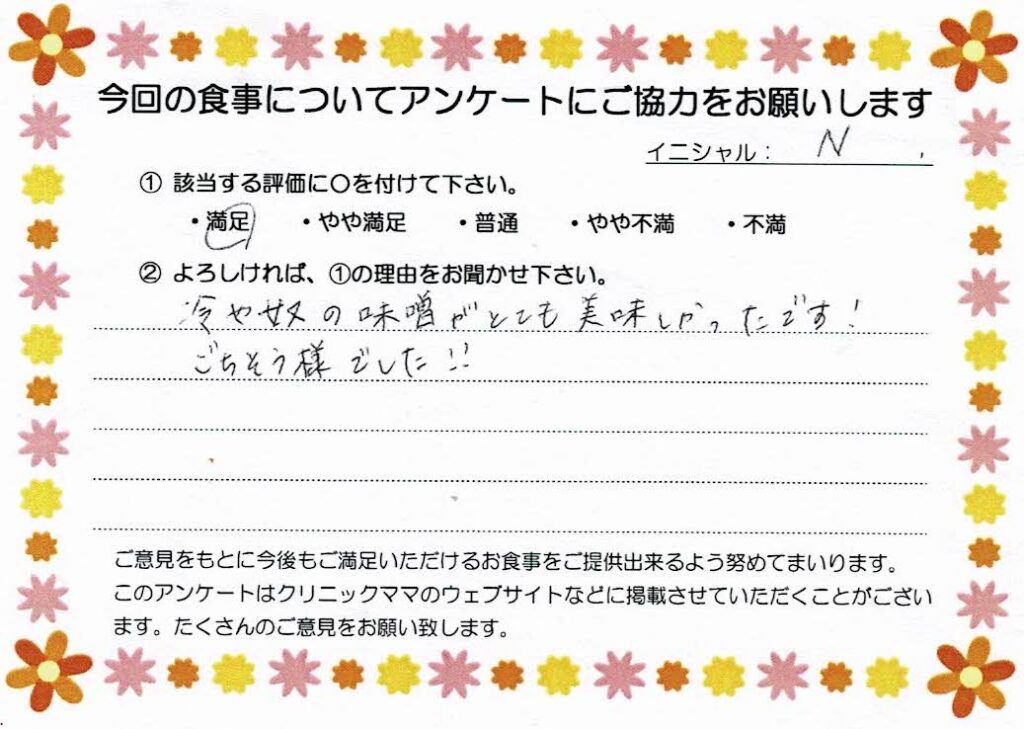 今回の食事についてアンケートにご協力をお願いします
イニシャル： N
① 該当する評価に〇を付けて下さい。
・満足 ・やや満足 ・普通 ・やや不満 ・不満
② よろしければ、①の理由をお聞かせ下さい。
冷や奴の味噌がとても美味しかったです！
ごちそう様でした！！
ご意見をもとに今後もご満足いただけるお食事をご提供出来るよう努めてまいります。
このアンケートはクリニックママのウェブサイトなどに掲載させていただくことがござい
ます。たくさんのご意見をお願い致します。